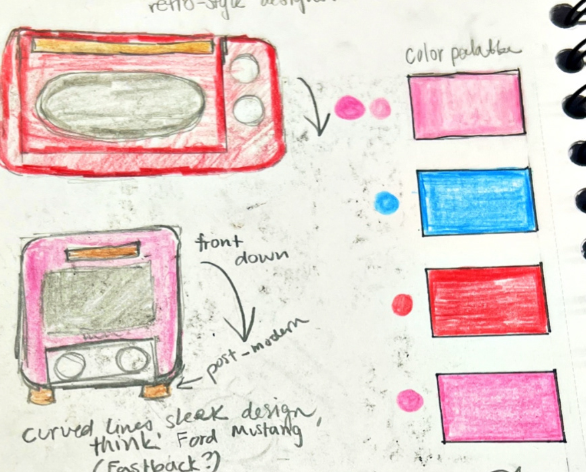 retro-style design
color palatte
front
down
post-modern
curved lines, sleek design,
think, Ford Mustang,
(Fastback?)